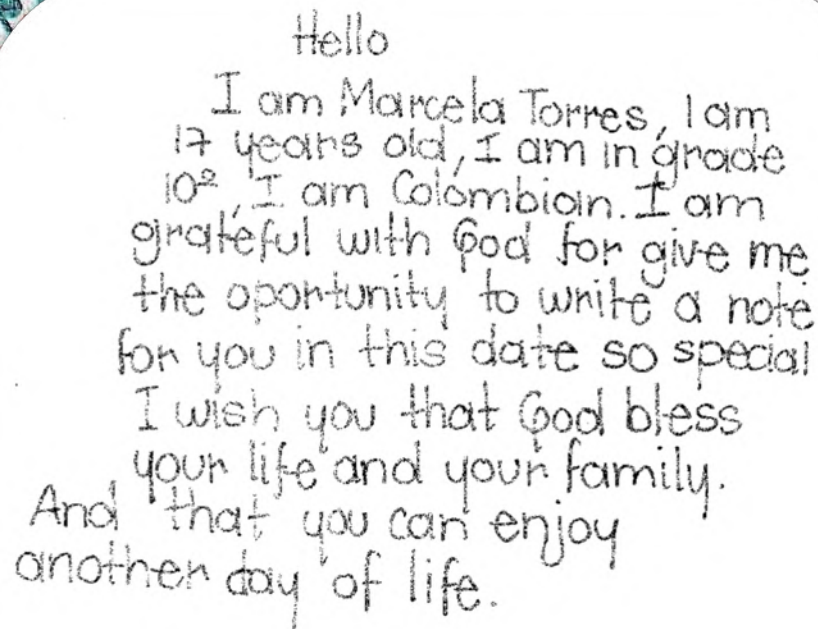 Hello
I am Marcela Torres, I am
17 years old, I am in grade
10º, I am Colombian. I am
grateful with God for give me
the oportunity to write a note
for you in this date so special
I wish you that God bless
your life and your family.
And that you can enjoy
another day of life.